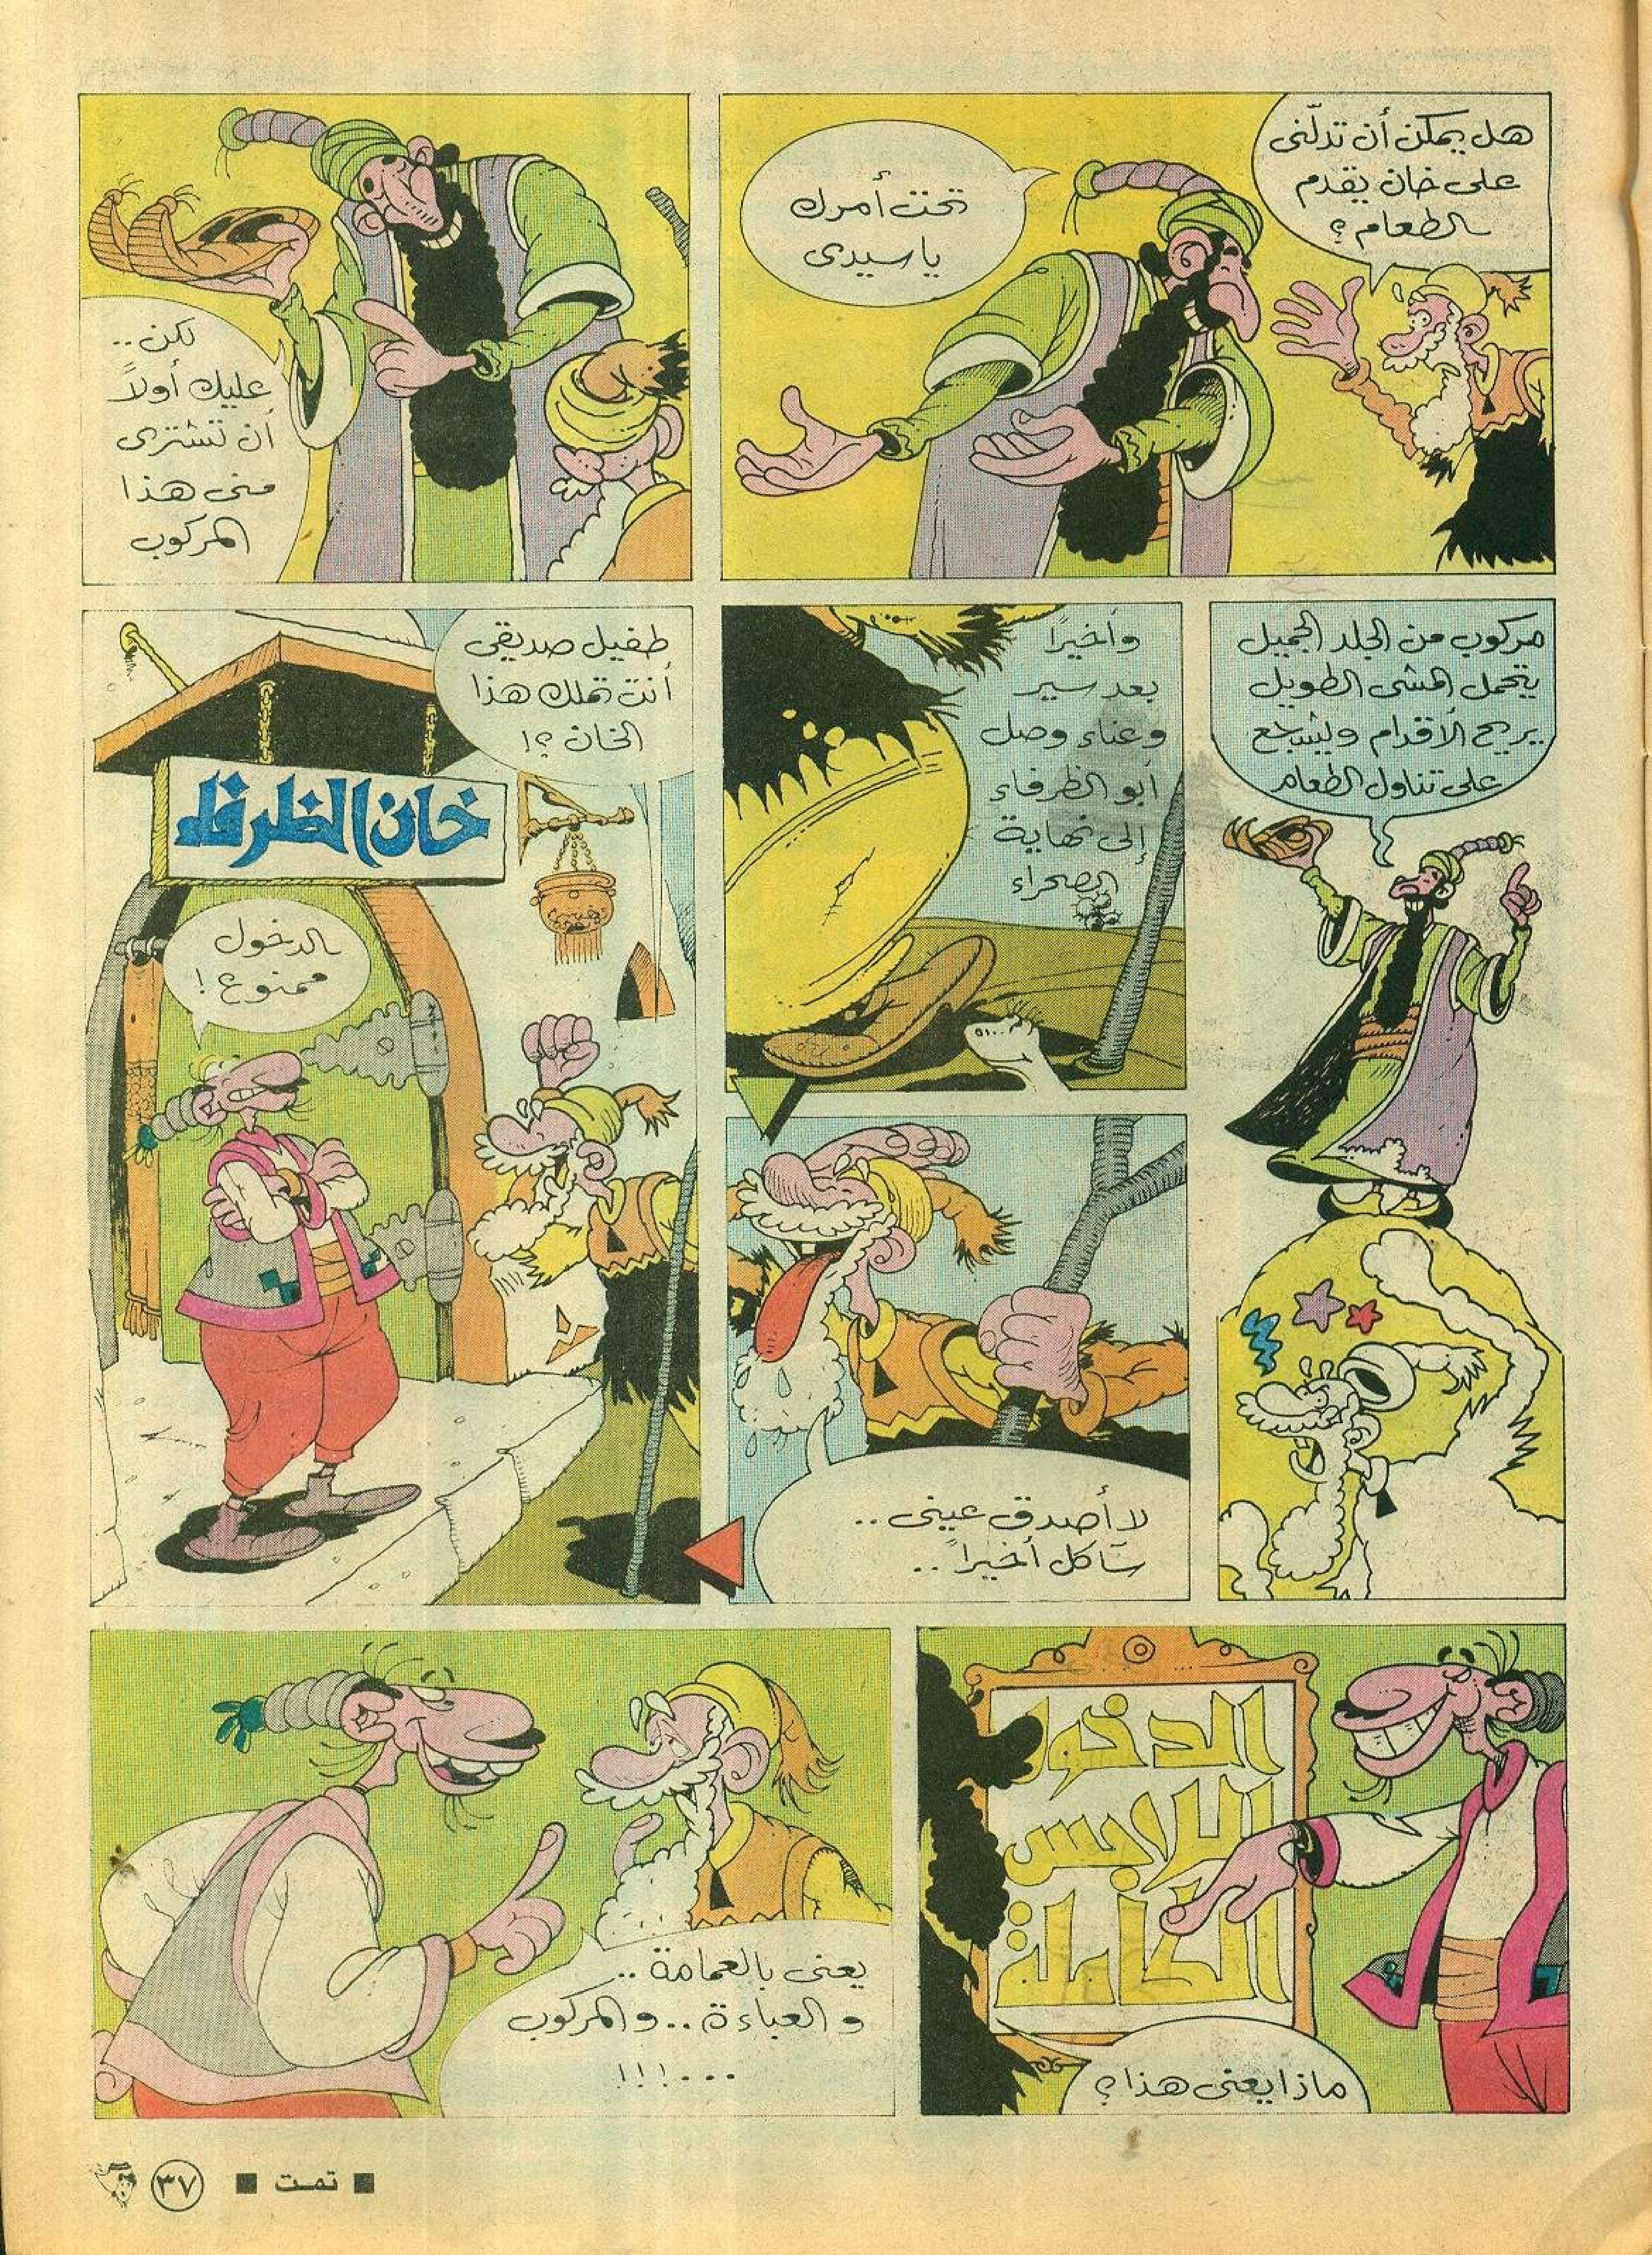 هل يمكن أن تدلّنى
على خان يقدم
الطعام؟
تحت أمرك
ياسيدى
لكن..
عليك أولاً
أن تشترى
منى هذا
المركوب
مركوب من الجلد الجميل
يتحمل المشى الطويل
يريح الأقدام ويشجع
على تناول الطعام
وأخيرًا
بعد سير
وعناء وصل
أبو الظرفاء
إلى نهاية
الصحراء
لا أصدق عينى..
سآكل أخيراً..
طفيل صديقى
أنت تملك هذا
الخان؟!
خان الظرفاء
الدخول
ممنوع!
الدخول
للابس
الكاملة
ماذا يعنى هذا؟
يعنى بالعمامة..
والعباءة.. والمركوب
...!!!
■ تمت ■
٣٧